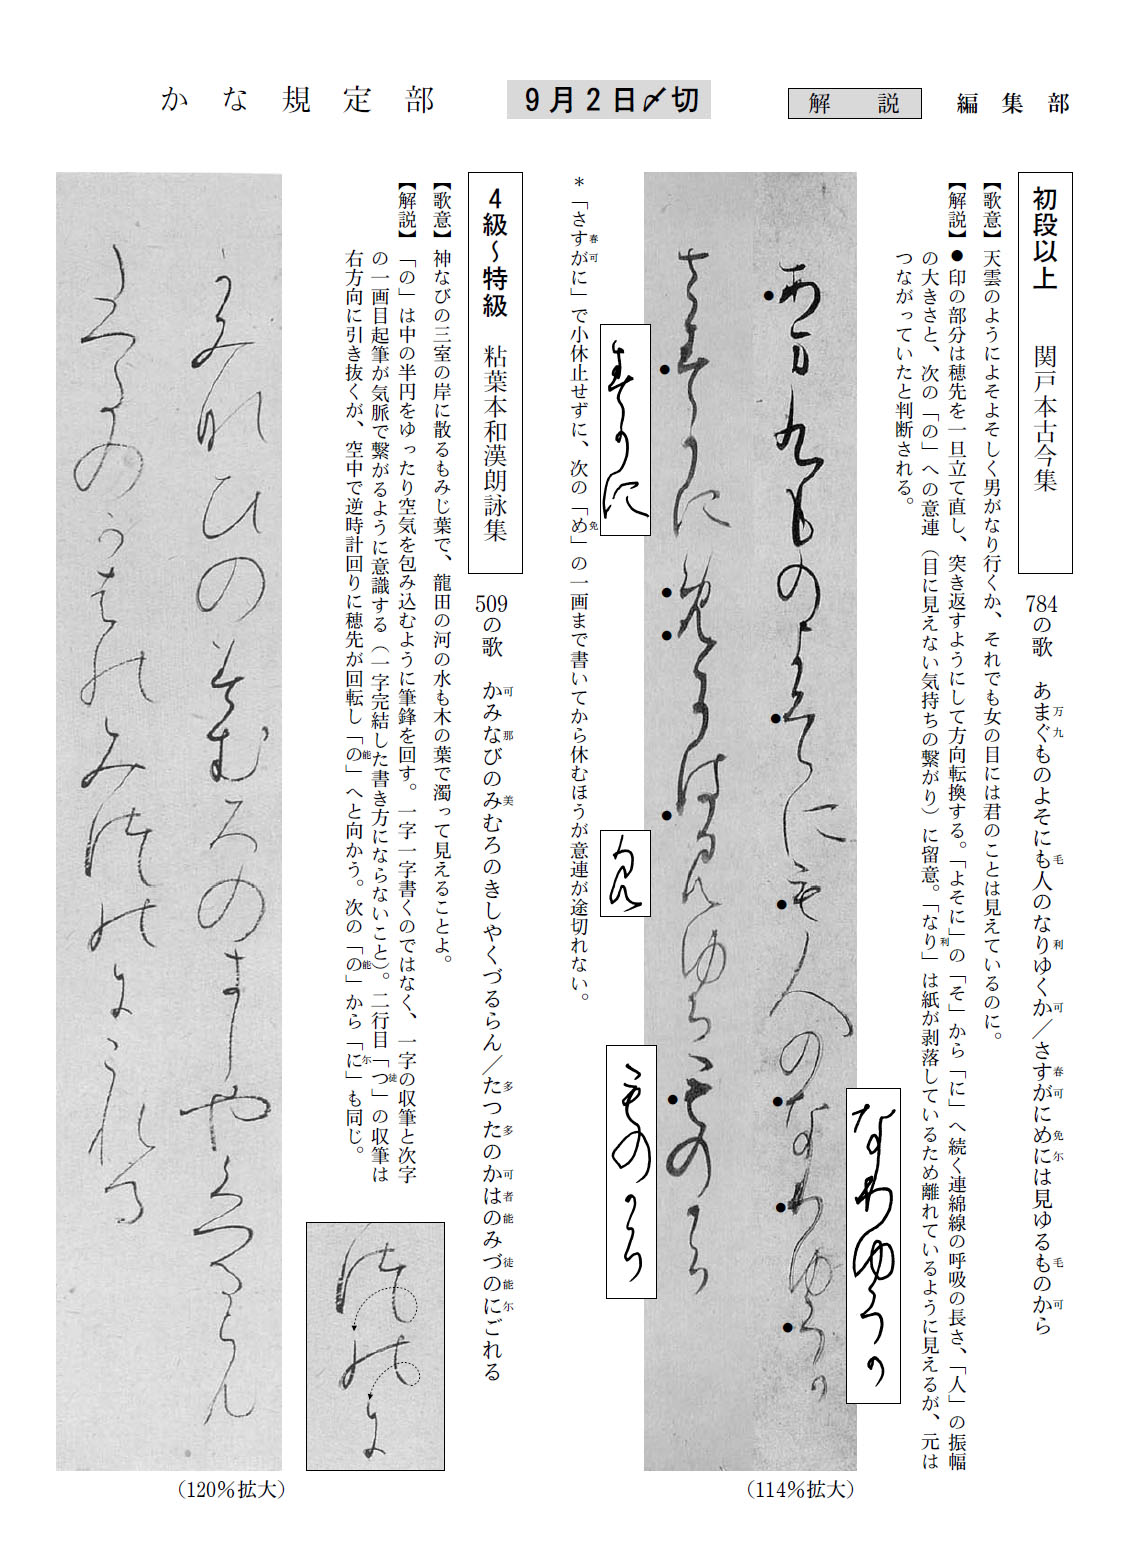 かな規定部
9月2日〆切
解説
編集部
初段以上　関戸本古今集
784の歌　あまぐものよそにも人のなりゆくか／さすがにめには見ゆるものから
万九毛利可春可免尓毛可
【歌意】天雲のようによそよそしく男がなり行くか、それでも女の目には君のことは見えているのに。
【解説】●印の部分は穂先を一旦立て直し、突き返すようにして方向転換する。「よそに」の「そ」から「に」へ続く連綿線の呼吸の長さ、「人」の振幅
の大きさと、次の「の」への意連（目に見えない気持ちの繋がり）に留意。「なり利」は紙が剥落しているため離れているように見えるが、元は
つながっていたと判断される。
＊「さす春が可に」で小休止せずに、次の「め免」の一画まで書いてから休むほうが意連が途切れない。
（114％拡大）
4級〜特級　粘葉本和漢朗詠集
509の歌　かみなびのみむろのきしやくづるらん／たつたのかはのみづのにごれる
可那美多多可者能徒能尓
【歌意】神なびの三室の岸に散るもみじ葉で、龍田の河の水も木の葉で濁って見えることよ。
【解説】「の」は中の半円をゆったり空気を包み込むように筆鋒を回す。一字一字書くのではなく、一字の収筆と次字
の一画目起筆が気脈で繋がるように意識する（一字完結した書き方にならないこと）。二行目「つ徒」の収筆は
右方向に引き抜くが、空中で逆時計回りに穂先が回転し「の能」へと向かう。次の「の能」から「に尓」も同じ。
（120％拡大）